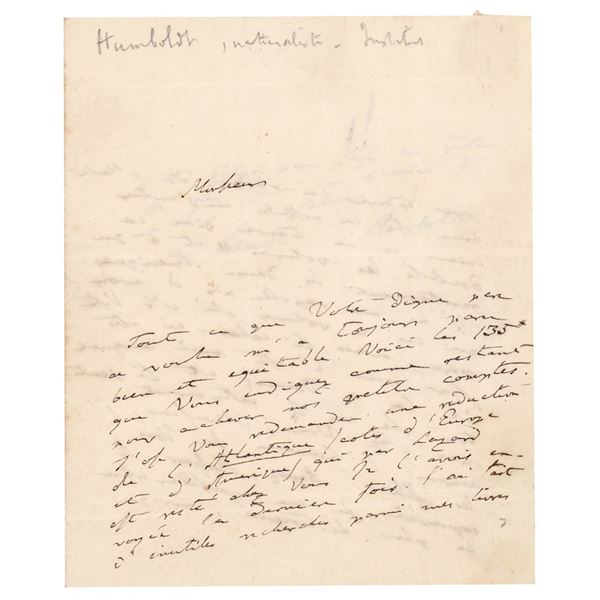 Humboldt, naturaliste - Institut
Monsieur
Tout ce que Votre digne père
a voulu m'a toujours paru
bien et equitable. Voici les 135 #
que Vous indiquez comme restant
pour achever nos petits comptes.
J'ose Vous redemander une reduction
de l'Atlantique (cotes d'Europe
et d'Amerique) qui par hazard
est resté chez Vous Je l'avois en-
voyée la dernière fois. J'ai fait
d'inutiles recherches parmi mes livres